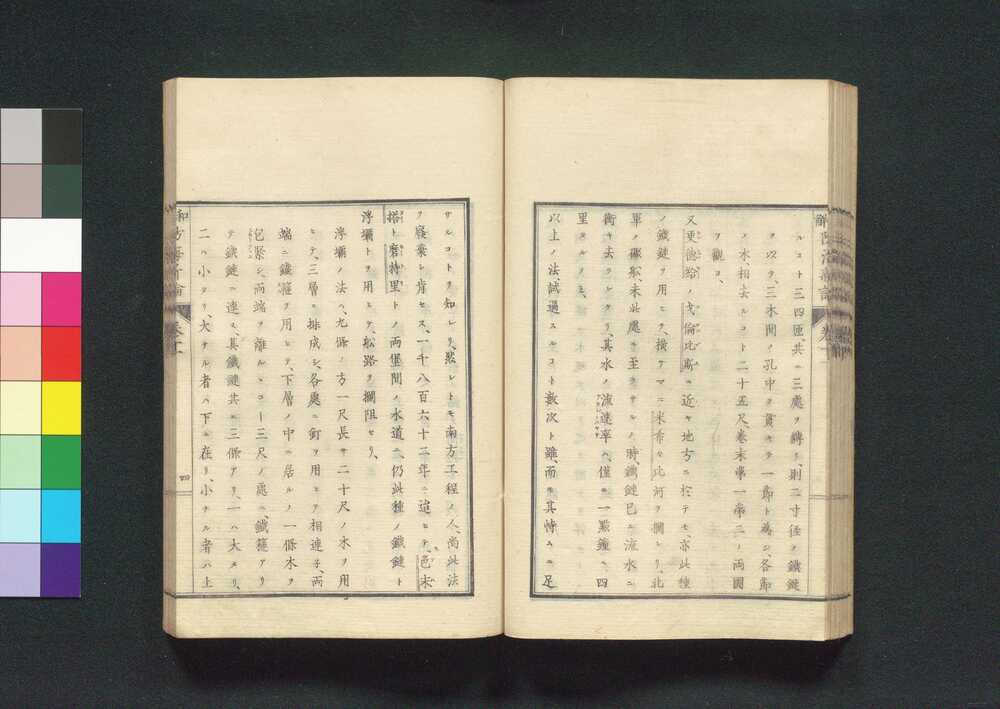 ルコト三四匝、共ニ三處ヲ縛シ、則二寸徑ヲ鐵鏈
ヲ以ヲ、三木間ノ孔中ヲ貫キテ一節ト為シ、各節
ノ木、相去ルコト二十五尺、卷末第一第二ノ両圖
ヲ觀ヨ、
又更徳給ノ戈倫比斯ニ近キ地方ニ於テモ、亦此種
ノ鐵鏈ヲ用ヒテ、横サマニ米希々比河ヲ攔シリ、北
軍ノ礮船、未此處ニ至ラサルノ時、鐵鏈已ニ流水ニ
衝キ去ラレタリ、其水ノ流速率ハ、僅ニ一點鐘ニ、四
里ヲルノミ、
以上ノ法、試過スルコト數次ト雖、而モ其恃ムニ足
サルコトヲ知レリ、然レトモ南方工程ノ人、尚此法
ヲ寝棄シ肯セス、一千八百六十三年ニ迨ヒテ、色末
搭ト磨特里トノ両堡間ノ水道ニ、仍此種ノ鐵鏈ト
浮攔トヲ用ヒテ、船路ヲ攔阻セリ、
浮攔ノ法ハ、九條ノ方一尺長サ二十尺ノ木ヲ用
ヒテ、三層ニ排成シ、各處ニ釘ヲ用ヒテ相連子、両
端ニ鐵箍ヲ用ヒテ、下層ノ中ニ居ルノ一條木ヲ
包緊シ、両端ヲ離ルヽコト三尺ノ處ニ、鐵箍アリ
テ鐵鏈ニ連ス、其鐵鏈共ニ三條アリ、一ハ大タリ、
二ハ小タリ、大ナル者ハ下ニ在リ、小ナル者ハ上
四